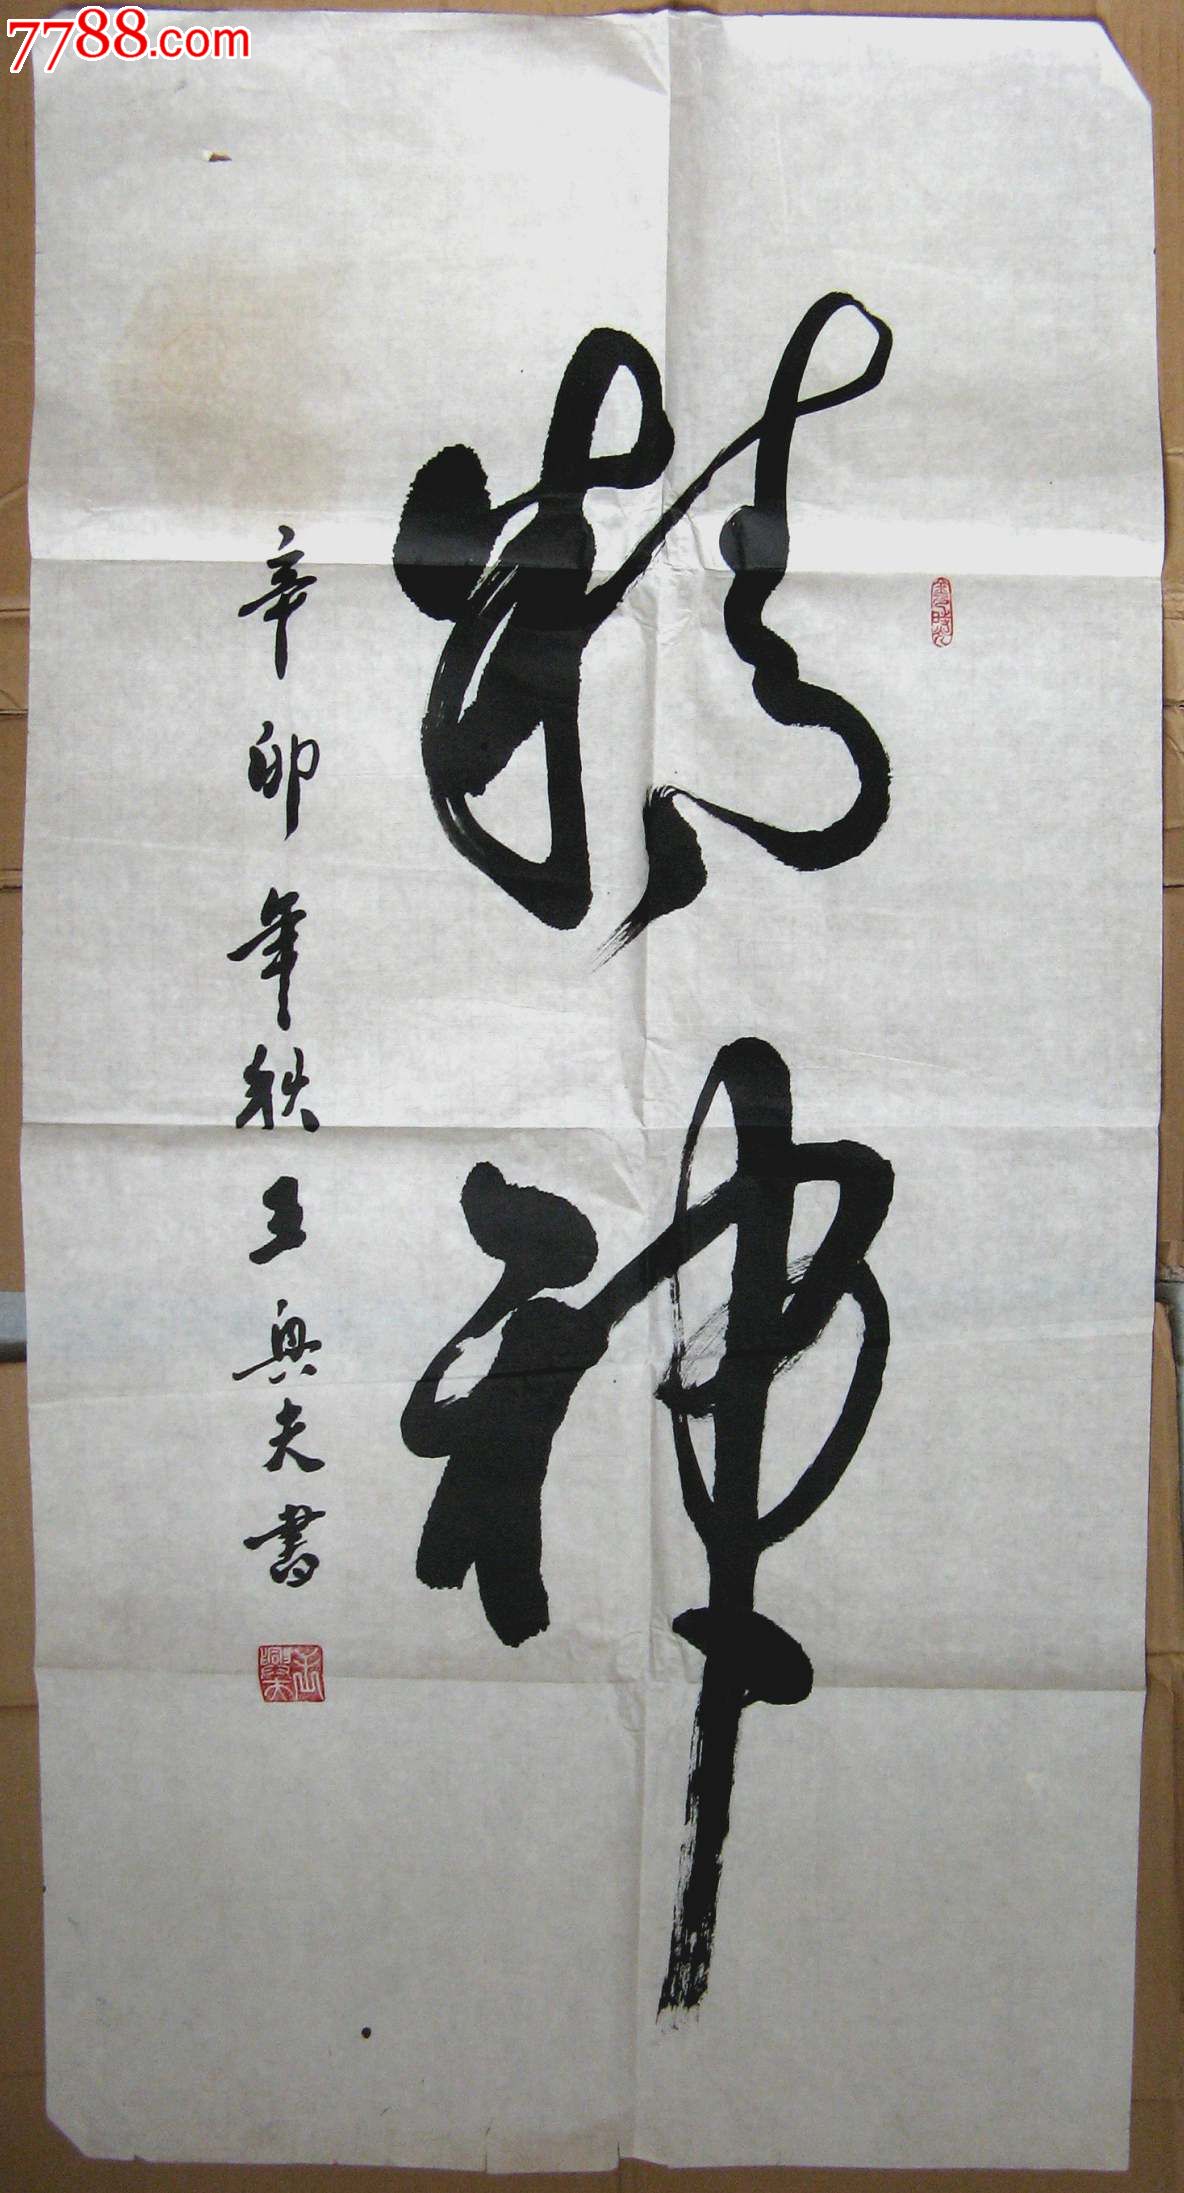 7788.com
精神
辛卯年秋王兴夫書